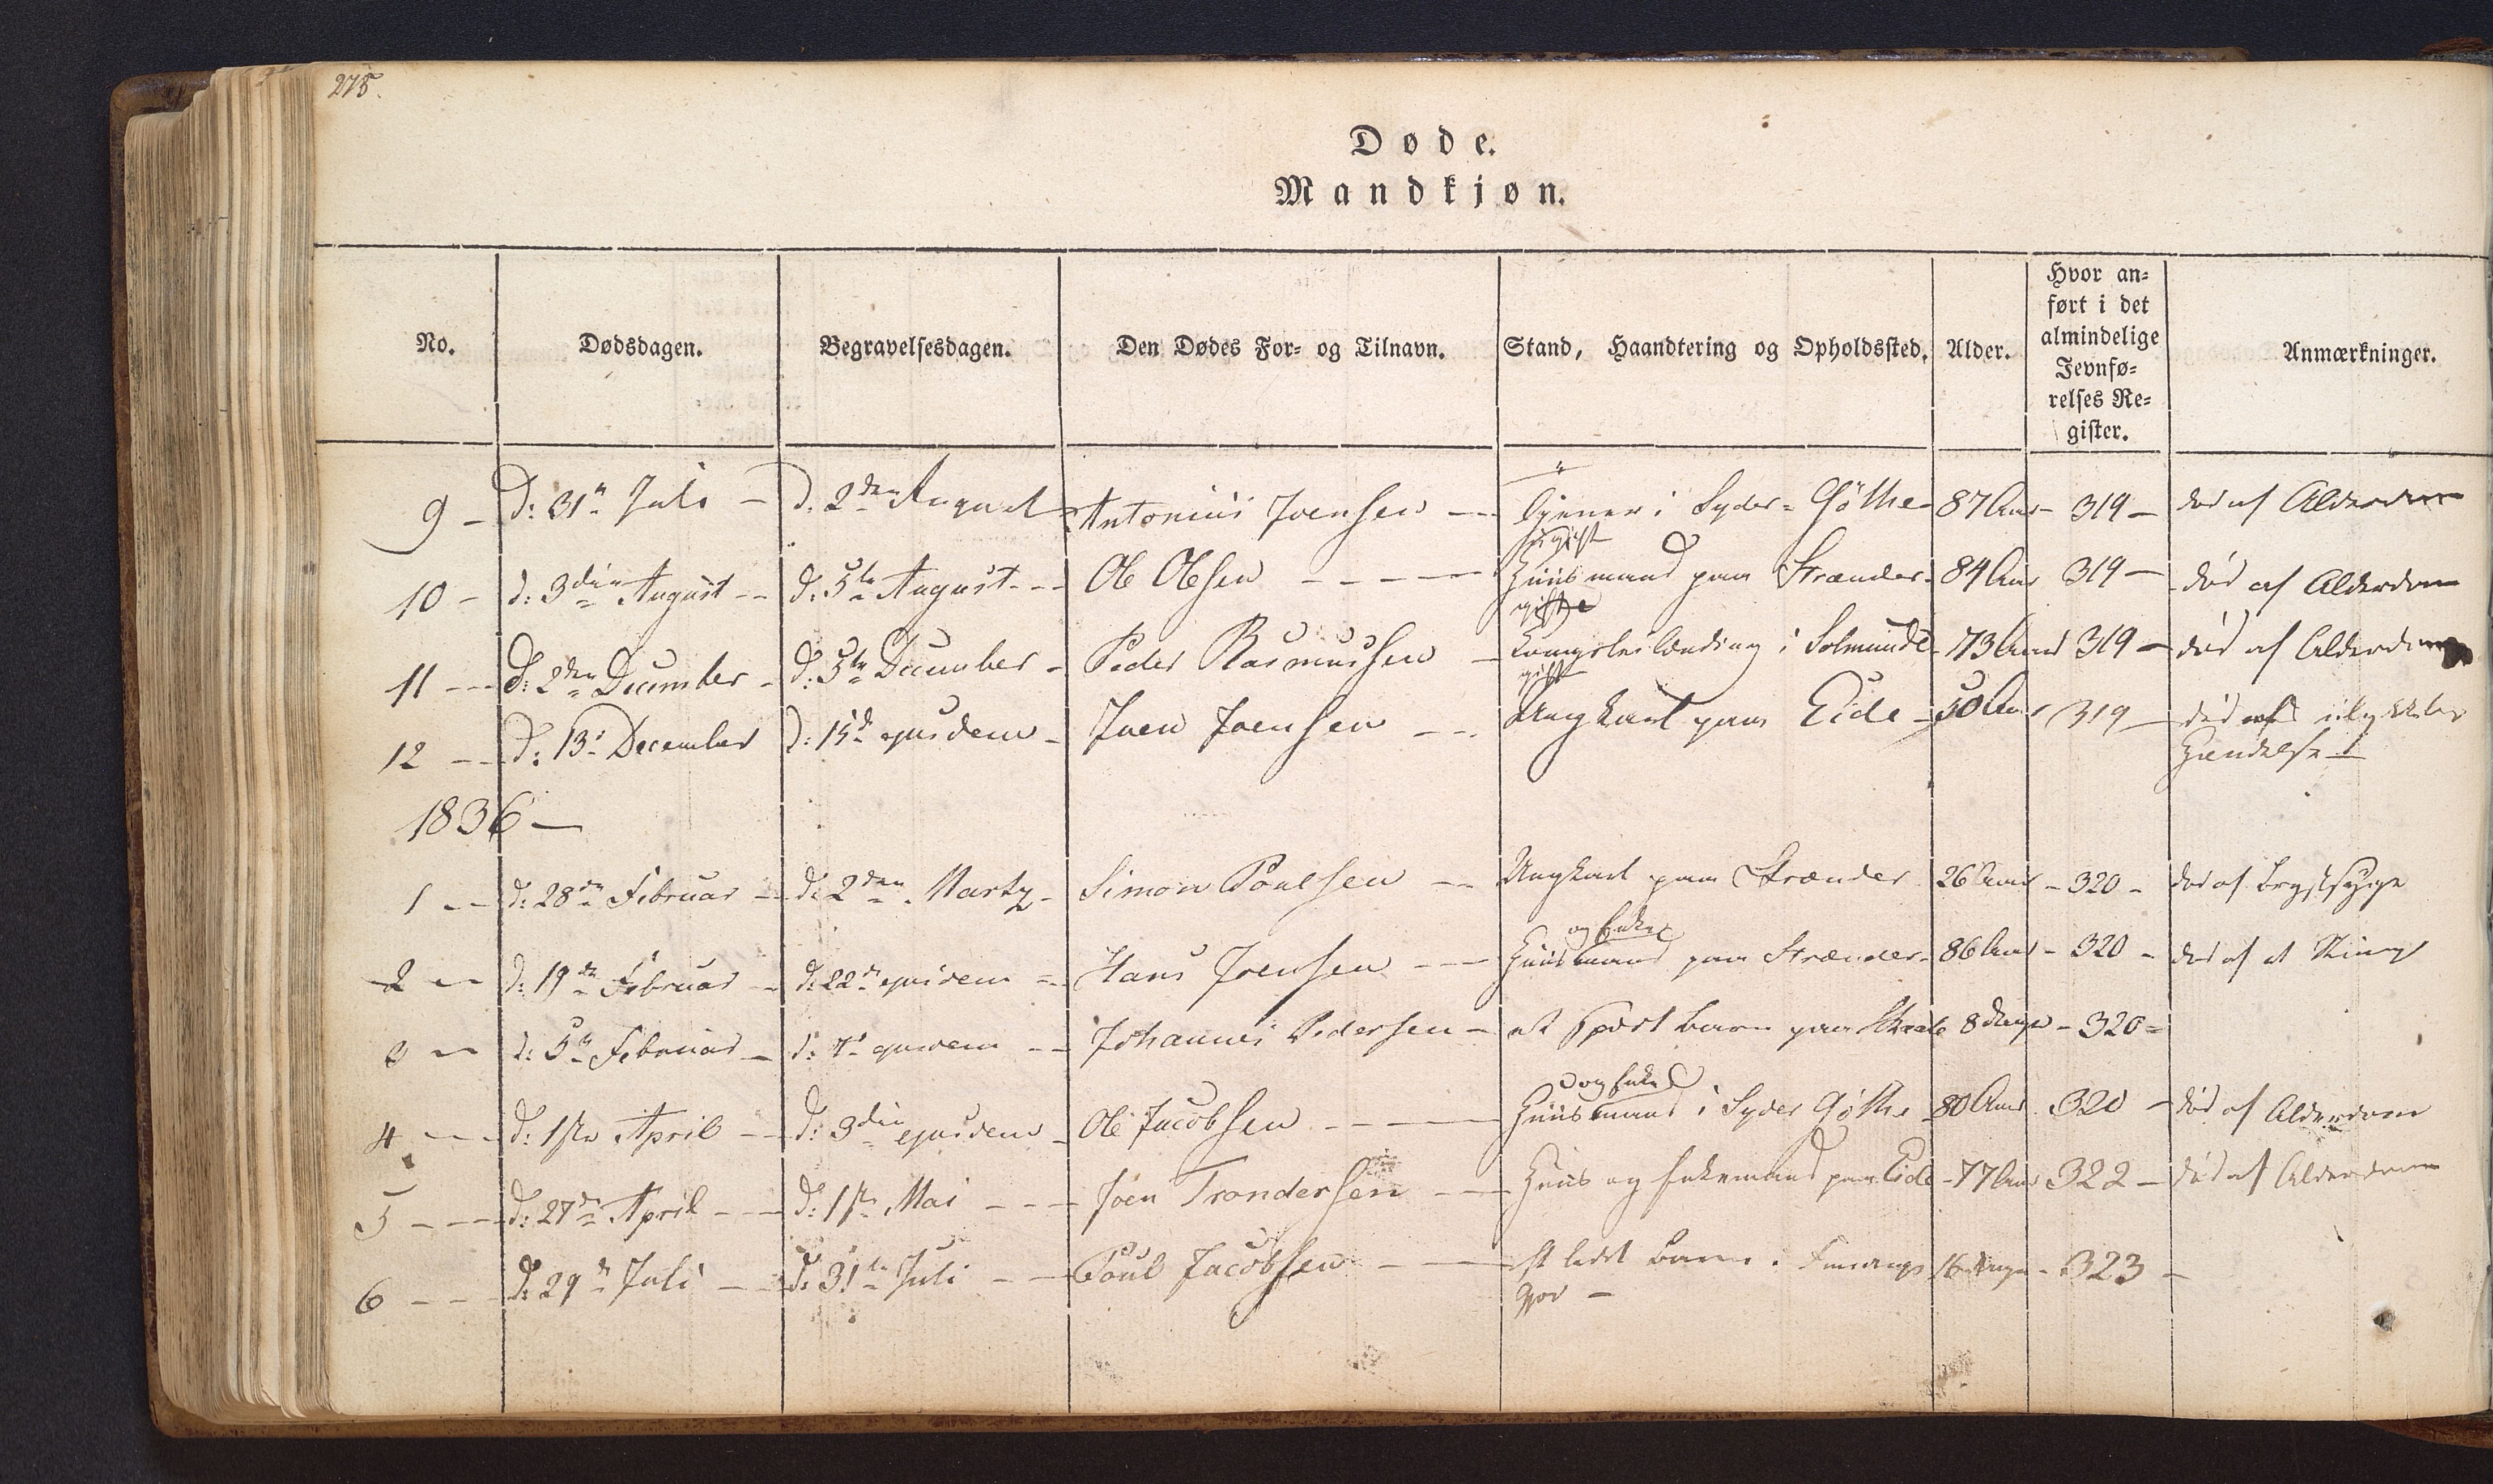 275.
Døde.
Mandkjøn.
No. Dødsdagen. Begravelsesdagen. Den Dødes For- og Tilnavn. Stand, Haandtering og Opholdssted. Alder. Hvor an-
ført i det
almindelige
Jevnfø-
relses Re-
gister. Anmærkninger.
9 – D: 31te Juli – D. 2den August Antonius Joensen – – Tjener i Syder-Gøthe 87 Aar – 319 – død af Alderdom
ugift
10 – d: 3die August – – d: 5te August – – Ole Olesen – – – – Huusmand paa Strænder 84 Aar 319 – død af Alderdom
gift
11 – – – d: 2den December – d: 5te December – Peder Rasmussen – Kongsleilænding i Solmunde 73 Aar 319 – død af Alderdom
gift
12 – – – d: 13de December d: 15de ejusdem – Joen Joensen – – Ungkarl paa Eide – 50 Aar 319 – død af ulykkelig
Hændelse
1836 –
1 – – d: 28de Februar – – d: 2den Marty – Simon Poulsen – – Ungkarl paa Strænder 26 Aar – 320 – død af Brystsyge
og Enke
2 – – d: 19de Februar – – d: 22de ejusdem – – Hans Joensen – – – Huusmand paa Strænder – 86 Aar – 320 – død af et
3 – – d: 5te Februar – d: 7de ejusdem – – Johannes Pedersen – et spædt Barn paa 8 Dage – 320 –
og Enke
4 – – – d: 1ste April – – d: 3die ejusdem – Ole Jacobsen – – – – Huusmand i Syder Gøthe 80 Aar 320 – død af Alderdom
5 – – – d: 27de April – – – d: 1ste Mai – – – Joen Trondersen – – – Huus og Enkemand paa Eide – 77 Aar 322 – død af Alderdom
6 – – – d: 29de Juli – – d: 31te Juli – – – Poul Jacobsen – – – et lidet Barn i 16 Dage – 323 –
Gjov –